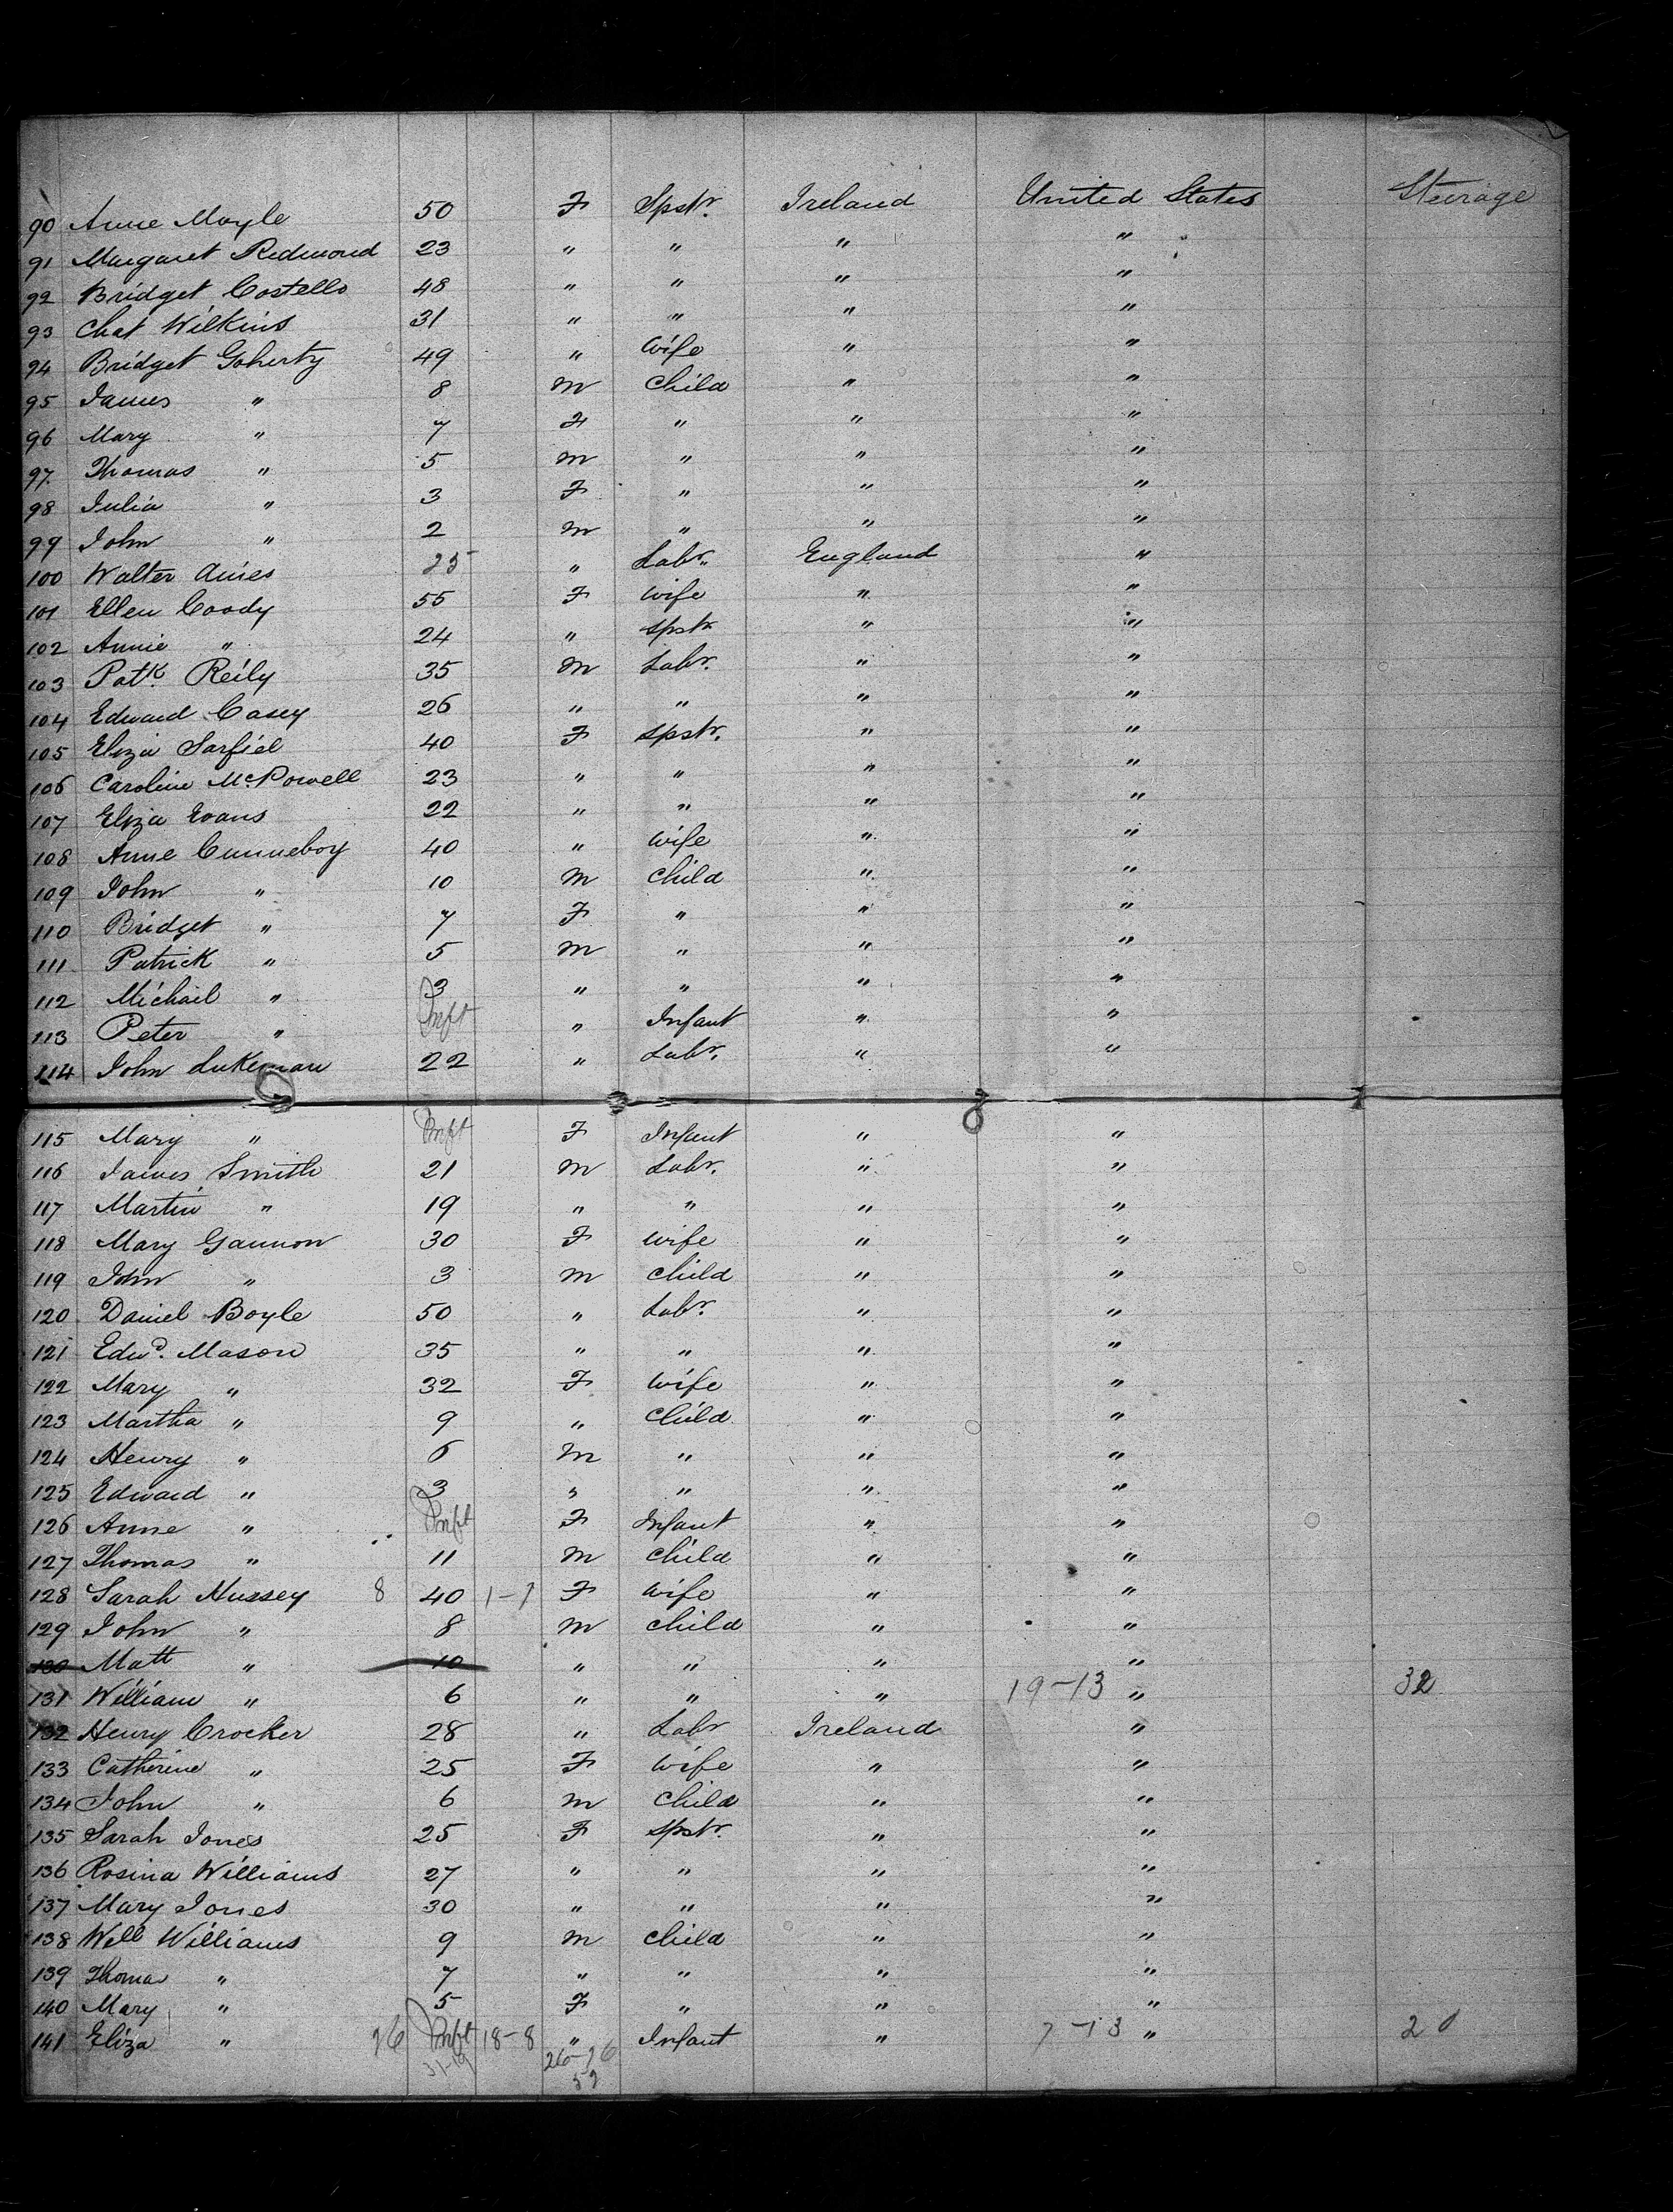 90 Anne Moyle 50 F Spstr. Ireland United States Steerage
91 Margaret Redmond 23 " " " "
92 Bridget Costello 48 " " " "
93 Chat Wilkins 31 " " " "
94 Bridget Goherty 49 " Wife " "
95 James " 8 M Child " "
96 Mary " 7 F " " "
97 Thomas " 5 M " " "
98 Julia " 3 F " " "
99 John " 2 M " " "
100 Walter Aines 25 " Labr. England "
101 Ellen Coody 55 F Wife " "
102 Annie " 24 " Spstr " "
103 Patk. Reily 35 M Labr. " "
104 Edward Casey 26 " " " "
105 Eliza Sarfiel 40 F Spstr. " "
106 Caroline McPowell 23 " " " "
107 Eliza Evans 22 " " " "
108 Anne Cunneboy 40 " Wife " "
109 John " 10 M Child " "
110 Bridget " 7 F " " "
111 Patrick " 5 M " " "
112 Michail " 3 " " " "
113 Peter " Inft " Infant " "
114 John Lukeman 22 " Labr. " "
115 Mary " Inft F Infant " "
116 James Smith 21 M Labr. " "
117 Martin " 19 " " " "
118 Mary Gannon 30 F Wife " "
119 John " 3 M Child " "
120 Daniel Boyle 50 " Labr. " "
121 Edwd. Mason 35 " " " "
122 Mary " 32 F Wife " "
123 Martha " 9 " Child " "
124 Henry " 6 M " " "
125 Edward " 3 " " " "
126 Anne " Inft F Infant " "
127 Thomas " 11 M Child " "
128 Sarah Hussey 8 40 1-7 F Wife " "
129 John " 8 M Child " "
130 Matt " 10 " " " "
131 William " 6 " " " 19-13 " 32
132 Henry Crocker 28 " Labr Ireland "
133 Catherine " 25 F Wife " "
134 John " 6 M Child " "
135 Sarah Jones 25 F Spstr. " "
136 Rosina Williams 27 " " " "
137 Mary Jones 30 " " " "
138 Will Williams 9 M Child " "
139 Thomas " 7 " " " "
140 Mary " 5 F " " "
141 Eliza " 26 Inft 18-8 " Infant " 7-13 " 20
31-19 26-26
52